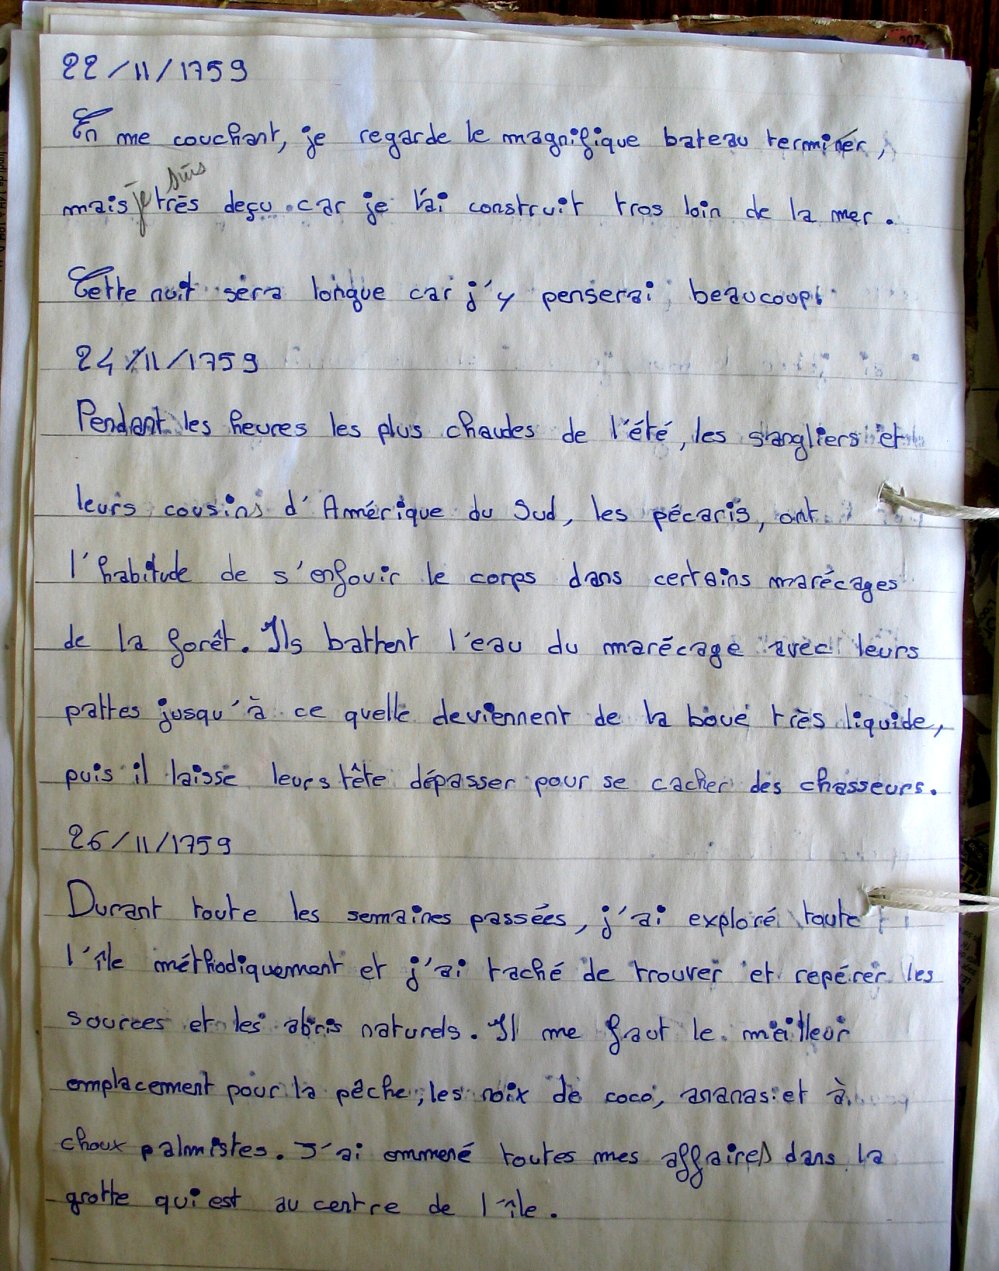 22/11/1759
En me couchant, je regarde le magnifique bateau terminér,
mais je suis très deçu car je l'ai construit tros loin de la mer.
Cette nuit sera longue car j'y penserai beaucoup.
24/11/1759
Pendant les heures les plus chaudes de l'été, les sangliers et
leurs cousins d'Amérique du Sud, les pécaris, ont
l'habitude de s'enfouir le corps dans certains marécages
de la forêt. Ils battent l'eau du marécage avec leurs
pattes jusqu'à ce quelle deviennent de la boue très liquide,
puis il laisse leurs tête dépasser pour se cacher des chasseurs.
26/11/1759
Durant toute les semaines passées, j'ai exploré toute
l'île méthodiquement et j'ai taché de trouver et repérer les
sources et les abris naturels. Il me faut le meilleur
emplacement pour la pêche, les noix de coco, ananas et à
choux palmistes. J'ai emmené toutes mes affaires dans la
grotte qui est au centre de l'île.